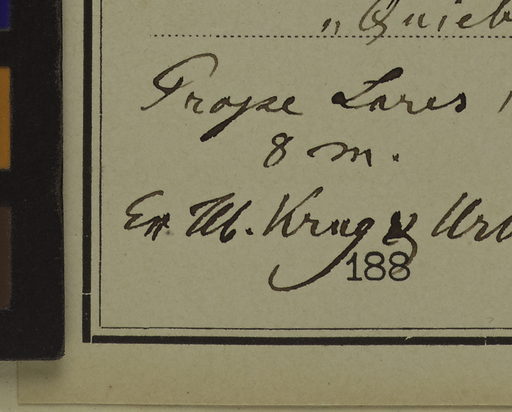 „Quieb
Tropse Lares
8 m.
Em M. Krug & Urb
188